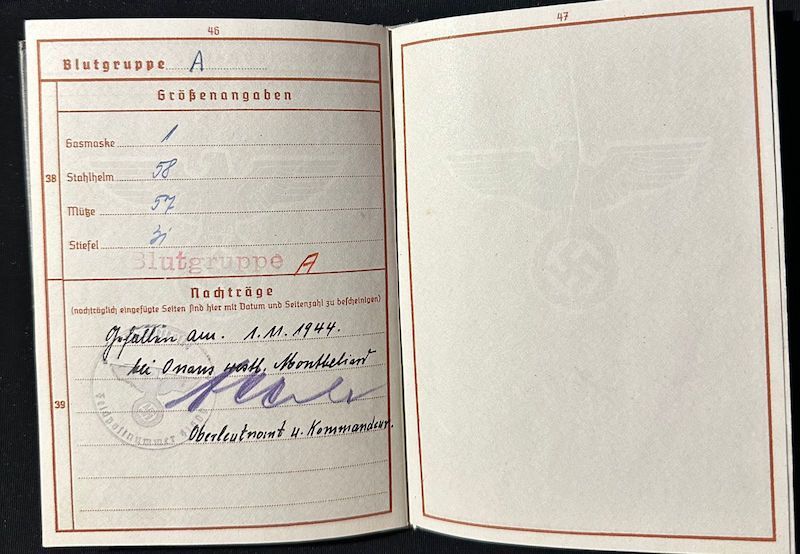 46
Blutgruppe A
Größenangaben
Gasmaske 1
38 Stahlhelm 58
Mütze 57
Stiefel
Blutgruppe A
Nachträge
(nachträglich eingefügte Seiten sind hier mit Datum und Seitenzahl zu bescheinigen)
Gefallen am. 1.11.1944.
bei Onans westl. Montbeliard
39
Oberleutnant u. Kommandeur.
Feldpostnummer
47